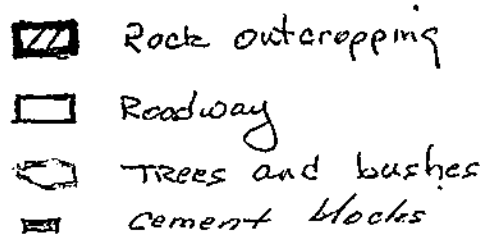 Rock outcropping
Roadway
TREES and bushes
cement blocks